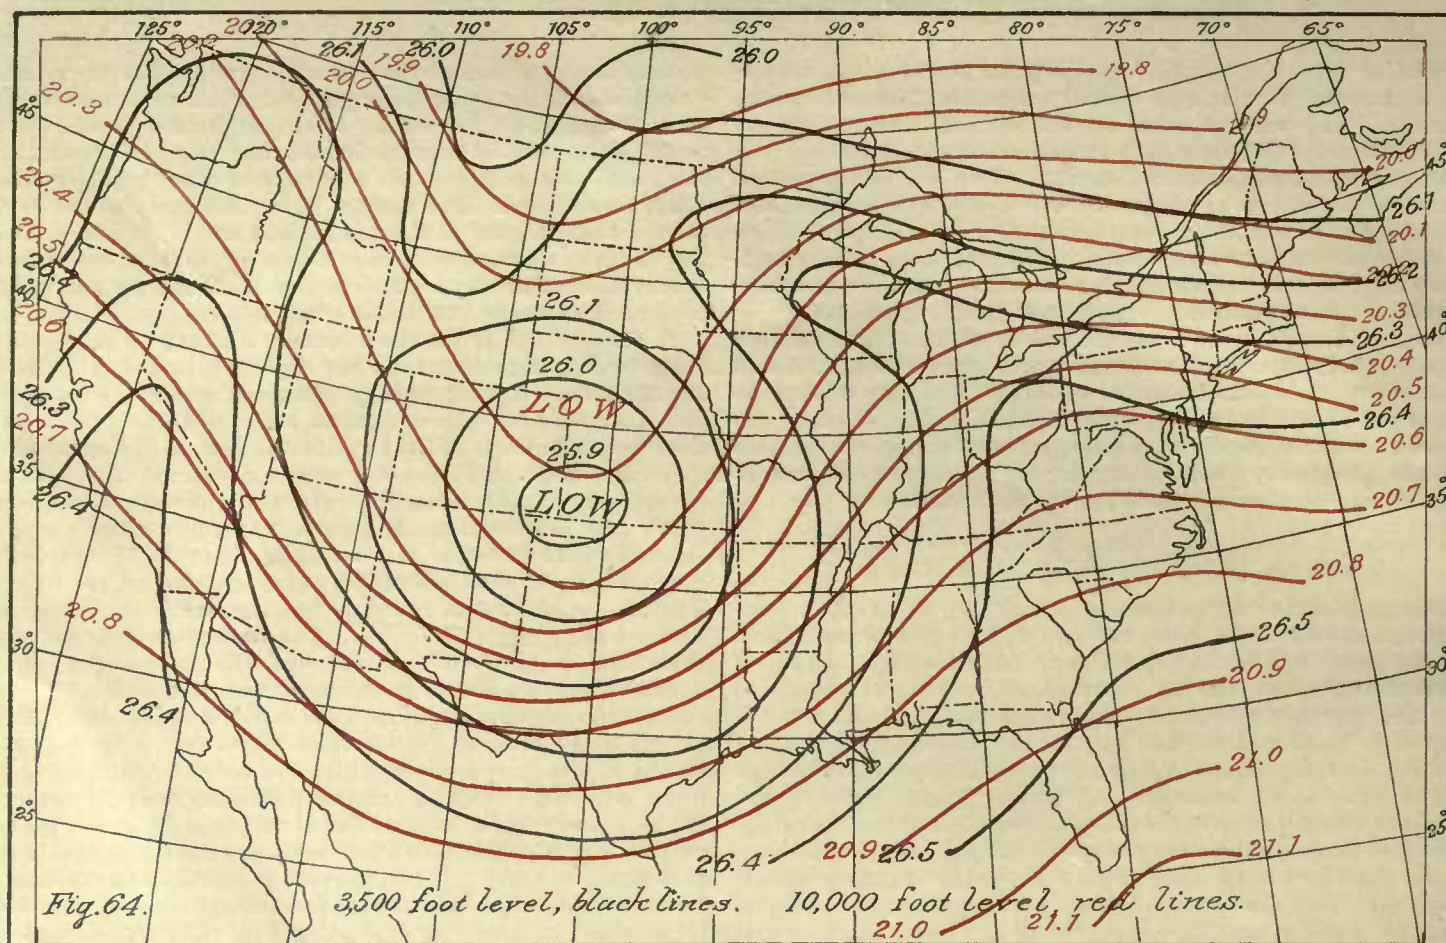 125° 120° 115° 110° 105° 100° 95° 90° 85° 80° 75° 70° 65°
20.2 20.1 26.1 19.9 26.0 19.8 26.0 19.8
20.0
45° 20.3 19.9
20.0 45°
20.4 26.1
20.5 20.1
26.2
40° 26.1 20.3
20.6 26.3 40°
26.0 20.4
26.3 LOW 20.5
20.7 26.4
25.9 20.6
35° 26.4 LOW 20.7 35°
20.8
20.8 26.5
30° 20.9 30°
26.4
21.0
25° 25°
26.4 20.9 26.5 21.1
Fig.64. 3,500 foot level, black lines. 10,000 foot level, red lines.
21.0 21.1